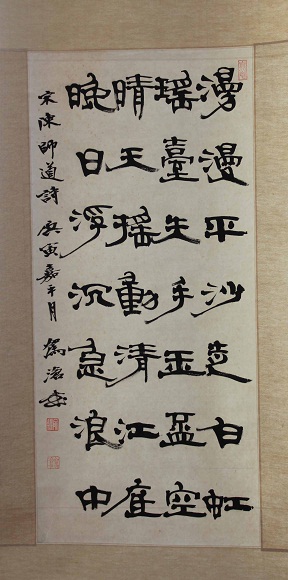 漫漫平沙走白虹
瑶臺失手玉盃空
晴天摇動清江底
晚日浮沉急浪中
宋陳師道詩 庚寅嘉平月